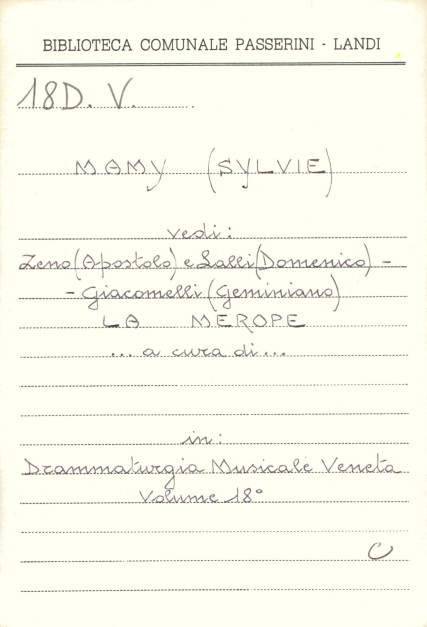 BIBLIOTECA COMUNALE PASSERINI - LANDI
18D. V.
MAMY (SYLVIE)
vedi:
Zeno (Apostolo) e Lalli (Domenico) -
- Giacomelli (Geminiano)
LA MEROPE
... a cura di ...
in:
Drammaturgia Musicale Veneta
Volume 18°
C